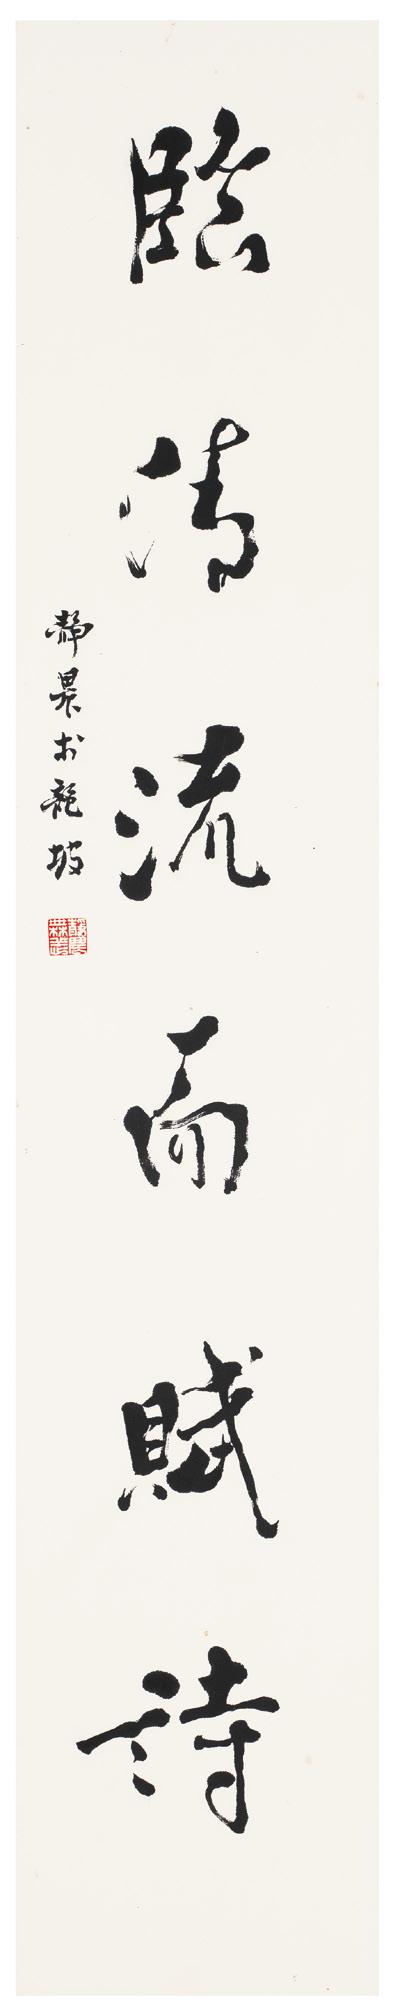 臨清流而賦詩
靜農於龍坡